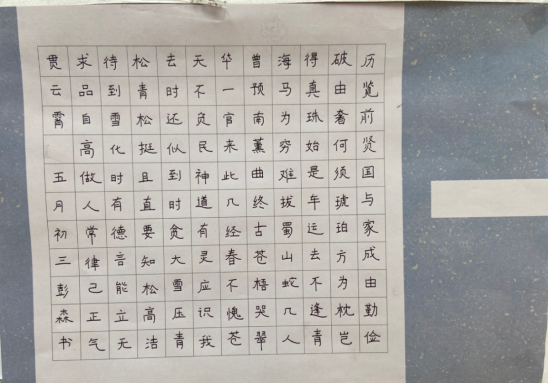 历览前贤国与家成由勤俭
破由奢何须琥珀方为枕岂
得真珠始是车运去不逢青
海马为穷难拔蜀山蛇几人
曾预南薰曲终古苍梧哭翠
华一官来此几经春不愧苍
天不负民神道有灵应识我
去时还似到时贪大雪压青
松青松挺且直要知松高洁
待到雪化时有德言能立无
求品自高做人常律己正气
贯云霄 五月初三彭森书